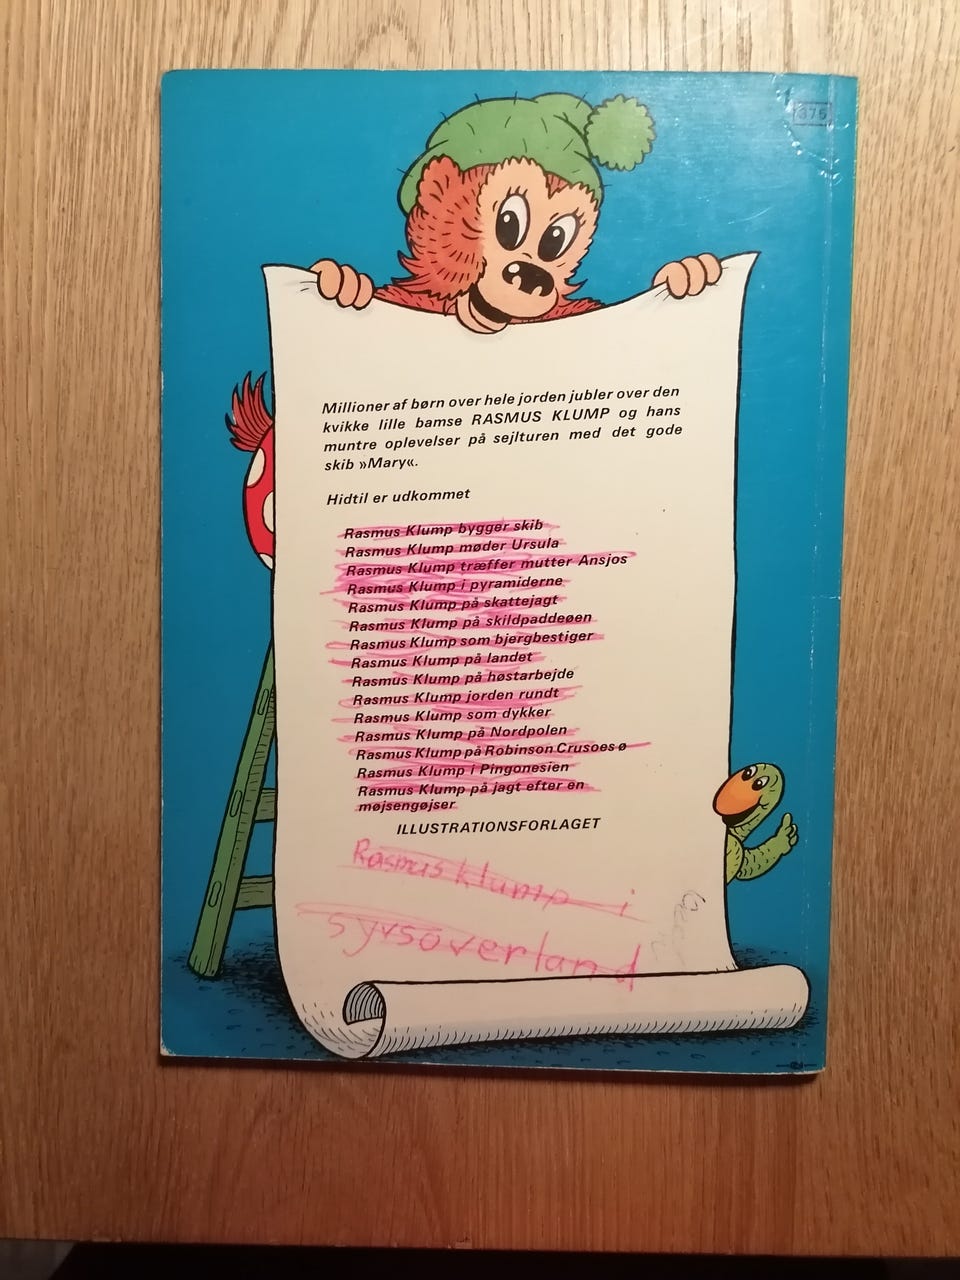 375
Millioner af børn over hele jorden jubler over den
kvikke lille bamse RASMUS KLUMP og hans
muntre oplevelser på sejlturen med det gode
skib »Mary«.
Hidtil er udkommet
Rasmus Klump bygger skib
Rasmus Klump møder Ursula
Rasmus Klump træffer mutter Ansjos
Rasmus Klump i pyramiderne
Rasmus Klump på skattejagt
Rasmus Klump på skildpaddeøen
Rasmus Klump som bjergbestiger
Rasmus Klump på landet
Rasmus Klump på høstarbejde
Rasmus Klump jorden rundt
Rasmus Klump som dykker
Rasmus Klump på Nordpolen
Rasmus Klump på Robinson Crusoes ø
Rasmus Klump i Pingonesien
Rasmus Klump på jagt efter en
møjsengøjser
ILLUSTRATIONSFORLAGET
Rasmus klump i
syvsoverland